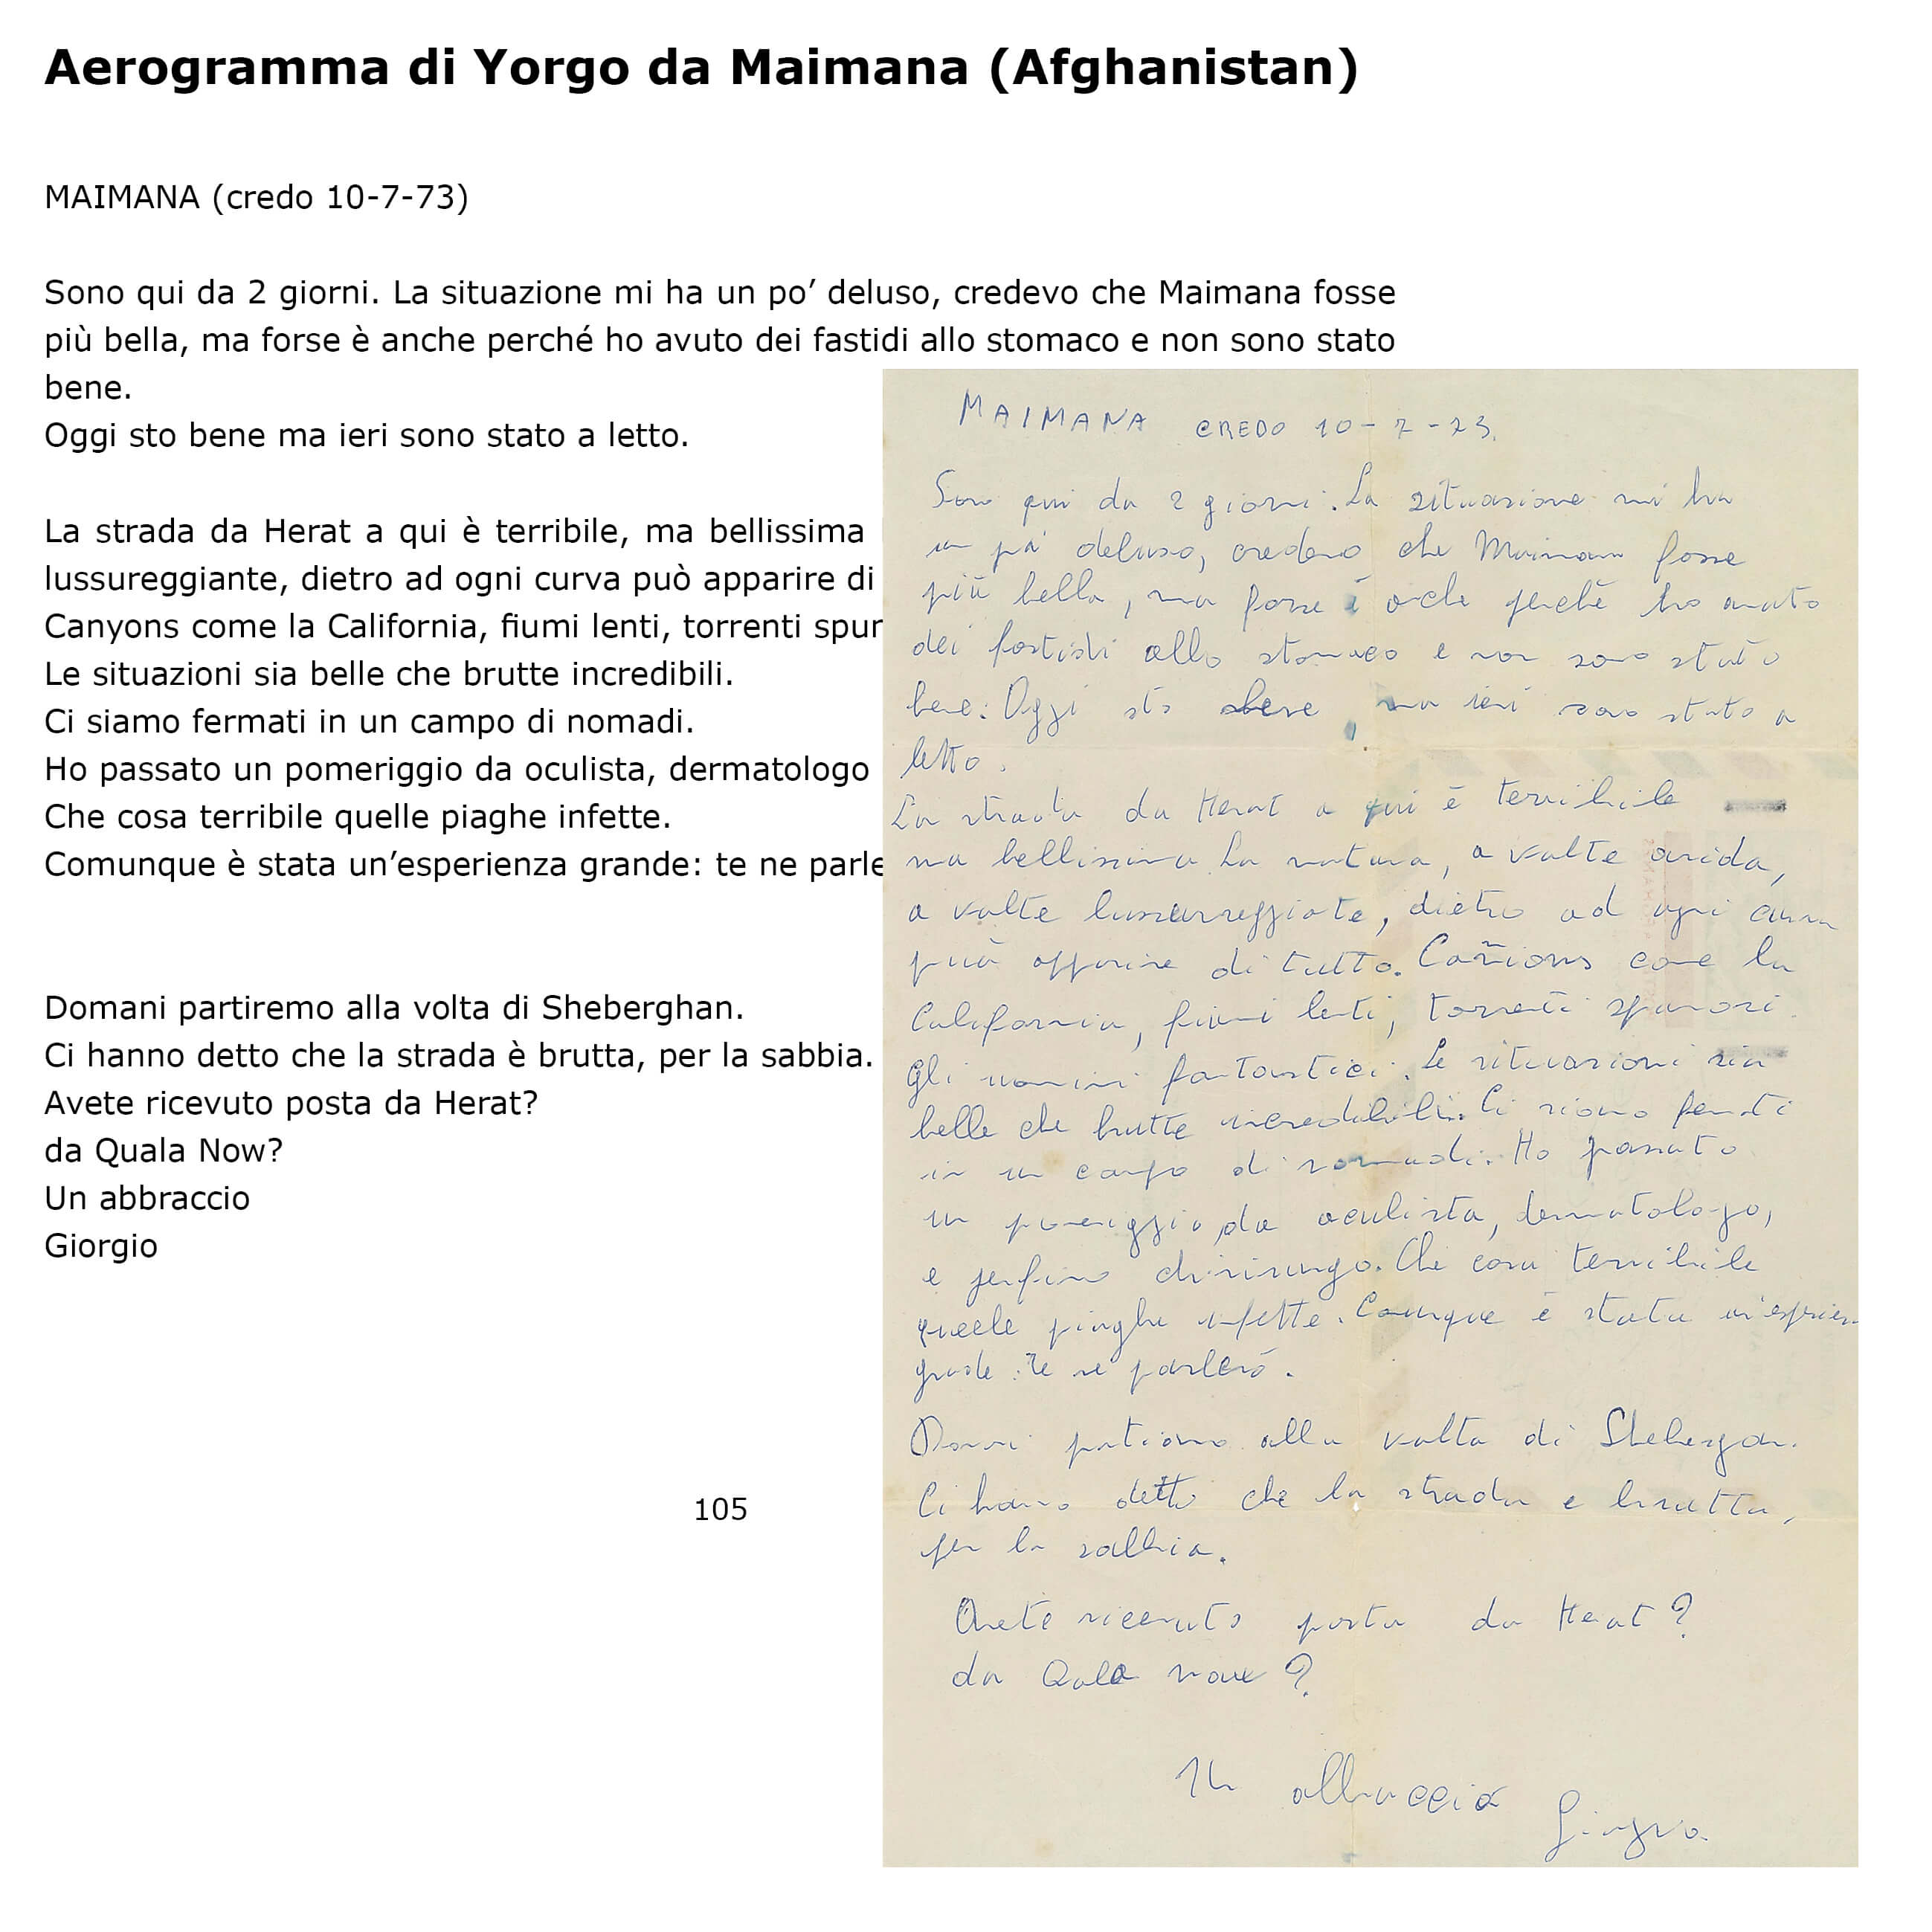 Aerogramma di Yorgo da Maimana (Afghanistan)
MAIMANA (credo 10-7-73)
Sono qui da 2 giorni. La situazione mi ha un po’ deluso, credevo che Maimana fosse
più bella, ma forse è anche perché ho avuto dei fastidi allo stomaco e non sono stato
bene.
Oggi sto bene ma ieri sono stato a letto.
La strada da Herat a qui è terribile, ma bellissima
lussureggiante, dietro ad ogni curva può apparire di
Canyons come la California, fiumi lenti, torrenti spur
Le situazioni sia belle che brutte incredibili.
Ci siamo fermati in un campo di nomadi.
Ho passato un pomeriggio da oculista, dermatologo
Che cosa terribile quelle piaghe infette.
Comunque è stata un’esperienza grande: te ne parle
Domani partiremo alla volta di Sheberghan.
Ci hanno detto che la strada è brutta, per la sabbia.
Avete ricevuto posta da Herat?
da Quala Now?
Un abbraccio
Giorgio
105
MAIMANA CREDO 10-7-73.
Sono qui da 2 giorni. La situazione mi ha
un po' deluso, credevo che Maimana fosse
più bella, ma forse è anche perchè ho avuto
dei fastidi allo stomaco e non sono stato
bene. Oggi sto bene, ma ieri sono stato a
letto.
La strada da Herat a qui è terribile
ma bellissima la natura, a volte arida,
a volte lussurreggiante, dietro ad ogni curva
può apparire di tutto. Cañions come la
California, fiumi lenti, torrenti spumosi.
Gli uomini fantastici. Le situazioni sia
belle che brutte incredibili. Ci siamo fermati
in un campo di nomadi. Ho passato
un pomeriggio, da oculista, dermatologo,
e perfino chirurgo. Che cosa terribile
quelle piaghe infette. Comunque è stata un'esperien
grande: te ne parlerò.
Domani partiamo alla volta di Shebergan.
Ci hanno detto che la strada e brutta,
per la sabbia.
Avete ricevuto posta da Herat?
da Qala now?
Un abbraccio
Giorgio.